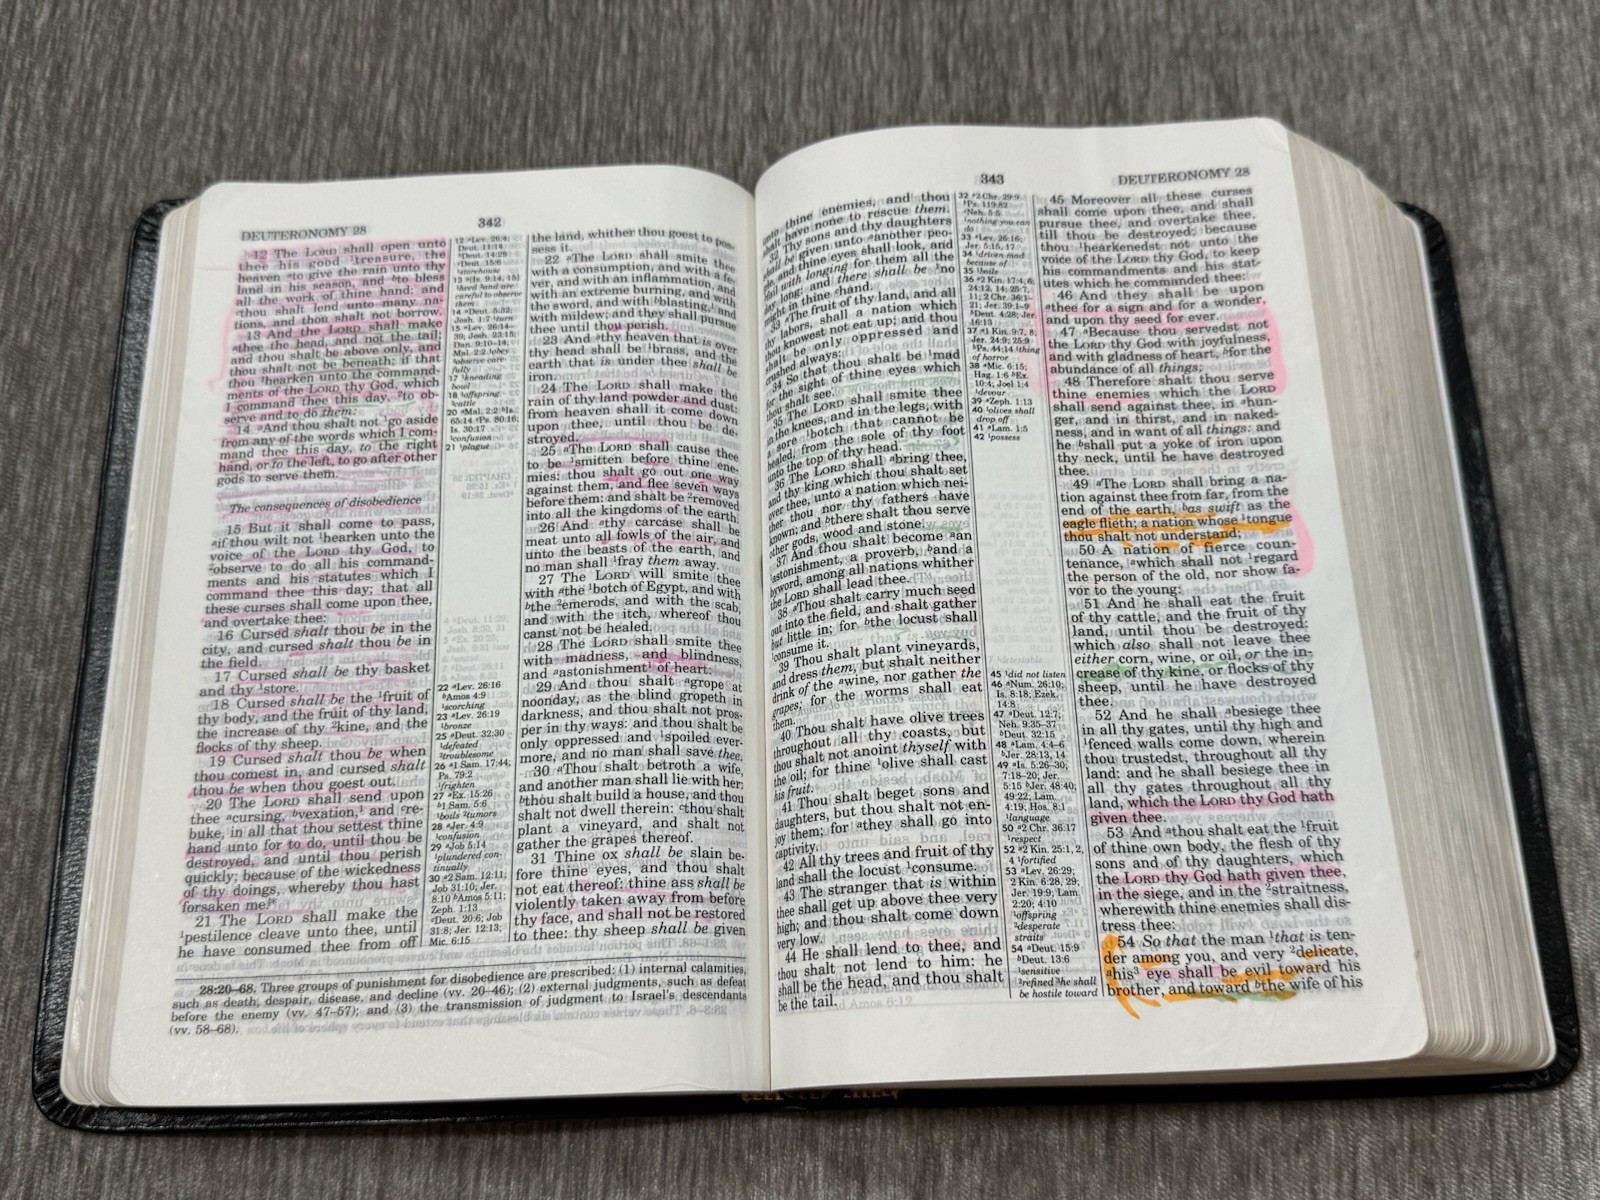 DEUTERONOMY 28
342
12 The LORD shall open unto
thee his good ¹treasure, the
heaven ᵃto give the rain unto thy
land in his season, and ᵇto bless
all the work of thine hand: and
ᶜthou shalt lend unto many na-
tions, and thou shalt not borrow.
13 And the LORD shall make
ᵃthee the head, and not the tail;
and thou shalt be above only, and
thou shalt not be beneath; if that
thou ¹hearken unto the command-
ments of the LORD thy God, which
I command thee this day, ²to ob-
serve and to do them:
14 ᵃAnd thou shalt not ¹go aside
from any of the words which I com-
mand thee this day, to the right
hand, or to the left, to go after other
gods to serve them.
The consequences of disobedience
15 But it shall come to pass,
ᵃif thou wilt not ¹hearken unto the
voice of the LORD thy God, to
²observe to do all his command-
ments and his statutes which I
command thee this day; that all
these curses shall come upon thee,
and overtake thee:
16 Cursed shalt thou be in the
city, and cursed shalt thou be in
the field.
17 Cursed shall be thy basket
and thy ¹store.
18 Cursed shall be the ¹fruit of
thy body, and the fruit of thy land,
the increase of thy ²kine, and the
flocks of thy sheep.
19 Cursed shalt thou be when
thou comest in, and cursed shalt
thou be when thou goest out.
20 The LORD shall send upon
thee ᵃcursing, ᵇvexation,¹ and ᶜre-
buke, in all that thou settest thine
hand unto for to do, until thou be
destroyed, and until thou perish
quickly; because of the wickedness
of thy doings, whereby thou hast
forsaken me.
21 The LORD shall make the
¹pestilence cleave unto thee, until
he have consumed thee from off
12 ᵃLev. 26:4;
Deut. 11:14
ᵇDeut. 14:29
ᶜDeut. 15:6
¹storehouse
13 ᵃIs. 9:14, 15
¹heed ²and are
careful to observe
them
14 ᵃDeut. 5:32;
Josh. 1:7 ¹turn
15 ᵃLev. 26:14–
39; Josh. 23:15;
Dan. 9:10–14;
Mal. 2:2 ¹obey
²observe care-
fully
17 ¹kneading
bowl
18 ¹offspring
²cattle
20 ᵃMal. 2:2 ᵇIs.
65:14 ᶜPs. 80:16;
Is. 30:17
¹confusion
21 ¹plague
22 ᵃLev. 26:16
ᵇAmos 4:9
¹scorching
23 ᵃLev. 26:19
¹bronze
25 ᵃDeut. 32:30
¹defeated
²troublesome
26 ᵃ1 Sam. 17:44;
Ps. 79:2
¹frighten
27 ᵃEx. 15:26
ᵇ1 Sam. 5:6
¹boils ²tumors
28 ᵃJer. 4:9
¹confusion
29 ᵃJob 5:14
¹plundered con-
tinually
30 ᵃ2 Sam. 12:11;
Job 31:10; Jer.
8:10 ᵇAmos 5:11;
Zeph. 1:13
ᶜDeut. 20:6; Job
31:8; Jer. 12:13;
Mic. 6:15
the land, whither thou goest to pos-
sess it.
22 ᵃThe LORD shall smite thee
with a consumption, and with a fe-
ver, and with an inflammation, and
with an extreme burning, and with
the sword, and with ᵇblasting,¹ and
with mildew; and they shall pursue
thee until thou perish.
23 And ᵃthy heaven that is over
thy head shall be ¹brass, and the
earth that is under thee shall be
iron.
24 The LORD shall make the
rain of thy land powder and dust:
from heaven shall it come down
upon thee, until thou be de-
stroyed.
25 ᵃThe LORD shall cause thee
to be ¹smitten before thine ene-
mies: thou shalt go out one way
against them, and flee seven ways
before them: and shalt be ²removed
into all the kingdoms of the earth.
26 And ᵃthy carcase shall be
meat unto all fowls of the air, and
unto the beasts of the earth, and
no man shall ¹fray them away.
27 The LORD will smite thee
with ᵃthe ¹botch of Egypt, and with
ᵇthe ²emerods, and with the scab,
and with the itch, whereof thou
canst not be healed.
28 The LORD shall smite thee
with madness, and blindness,
and ᵃastonishment¹ of heart:
29 And thou shalt ᵃgrope at
noonday, as the blind gropeth in
darkness, and thou shalt not pros-
per in thy ways: and thou shalt be
only oppressed and ¹spoiled ever-
more, and no man shall save thee.
30 ᵃThou shalt betroth a wife,
and another man shall lie with her:
ᵇthou shalt build a house, and thou
shalt not dwell therein: ᶜthou shalt
plant a vineyard, and shalt not
gather the grapes thereof.
31 Thine ox shall be slain be-
fore thine eyes, and thou shalt
not eat thereof: thine ass shall be
violently taken away from before
thy face, and shall not be restored
to thee: thy sheep shall be given
28:20–68. Three groups of punishment for disobedience are prescribed: (1) internal calamities,
such as death, despair, disease, and decline (vv. 20–46); (2) external judgments, such as defeat
before the enemy (vv. 47–57); and (3) the transmission of judgment to Israel's descendants
(vv. 58–68).
343
DEUTERONOMY 28
unto thine enemies, and thou
shalt have none to rescue them.
32 Thy sons and thy daughters
shall be given unto ᵃanother peo-
ple, and thine eyes shall look, and
fail with longing for them all the
day long: and there shall be ¹no
might in thine hand.
33 ᵃThe fruit of thy land, and all
thy labors, shall a nation which
thou knowest not eat up; and thou
shalt be only oppressed and
crushed always:
34 So that thou shalt be ¹mad
for the sight of thine eyes which
thou shalt see.
35 The LORD shall smite thee
in the knees, and in the legs, with
a sore ¹botch that cannot be
healed, from the sole of thy foot
unto the top of thy head.
36 The LORD shall ᵃbring thee,
and thy king which thou shalt set
over thee, unto a nation which nei-
ther thou nor thy fathers have
known; and ᵇthere shalt thou serve
other gods, wood and stone.
37 And thou shalt become ᵃan
¹astonishment, a proverb, ᵇand a
byword, among all nations whither
the LORD shall lead thee.
38 ᵃThou shalt carry much seed
out into the field, and shalt gather
but little in; for ᵇthe locust shall
¹consume it.
39 Thou shalt plant vineyards,
and dress them, but shalt neither
drink of the ᵃwine, nor gather the
grapes; for the worms shall eat
them.
40 Thou shalt have olive trees
throughout all thy coasts, but
thou shalt not anoint thyself with
the oil; for thine ¹olive shall cast
his fruit.
41 Thou shalt beget sons and
daughters, but thou shalt not en-
joy them; for ᵃthey shall go into
captivity.
42 All thy trees and fruit of thy
land shall the locust ¹consume.
43 The stranger that is within
thee shall get up above thee very
high; and thou shalt come down
very low.
44 He shall lend to thee, and
thou shalt not lend to him: he
shall be the head, and thou shalt
be the tail.
32 ᵃ2 Chr. 29:9
ᵇPs. 119:82
ᶜNeh. 5:5
¹nothing you can
do
33 ᵃLev. 26:16;
Jer. 5:15, 17
34 ¹driven mad
because of
35 ¹boils
36 ᵃ2 Kin. 17:4, 6;
24:12, 14; 25:7,
11; 2 Chr. 36:1–
21; Jer. 39:1–9
ᵇDeut. 4:28; Jer.
16:13
37 ᵃ1 Kin. 9:7, 8;
Jer. 24:9; 25:9
ᵇPs. 44:14 ¹thing
of horror
38 ᵃMic. 6:15;
Hag. 1:6 ᵇEx.
10:4; Joel 1:4
¹devour
39 ᵃZeph. 1:13
40 ¹olives shall
drop off
41 ᵃLam. 1:5
42 ¹possess
45 ¹did not listen
46 ᵃNum. 26:10;
Is. 8:18; Ezek.
14:8
47 ᵃDeut. 12:7;
Neh. 9:35–37
ᵇDeut. 32:15
48 ᵃLam. 4:4–6
ᵇJer. 28:13, 14
49 ᵃIs. 5:26–30;
7:18–20; Jer.
5:15 ᵇJer. 48:40;
49:22; Lam.
4:19; Hos. 8:1
¹language
50 ᵃ2 Chr. 36:17
¹respect
52 ᵃ2 Kin. 25:1, 2,
4 ¹fortified
53 ᵃLev. 26:29;
2 Kin. 6:28, 29;
Jer. 19:9; Lam.
2:20; 4:10
¹offspring
²desperate
straits
54 ᵃDeut. 15:9
ᵇDeut. 13:6
¹sensitive
²refined ³he shall
be hostile toward
45 Moreover all these curses
shall come upon thee, and shall
pursue thee, and overtake thee,
till thou be destroyed; because
thou ¹hearkenedst not unto the
voice of the LORD thy God, to keep
his commandments and his stat-
utes which he commanded thee:
46 And they shall be upon
ᵃthee for a sign and for a wonder,
and upon thy seed for ever.
47 ᵃBecause thou servedst not
the LORD thy God with joyfulness,
and with gladness of heart, ᵇfor the
abundance of all things;
48 Therefore shalt thou serve
thine enemies which the LORD
shall send against thee, in ᵃhun-
ger, and in thirst, and in naked-
ness, and in want of all things: and
he ᵇshall put a yoke of iron upon
thy neck, until he have destroyed
thee.
49 ᵃThe LORD shall bring a na-
tion against thee from far, from the
end of the earth, ᵇas swift as the
eagle flieth; a nation whose ¹tongue
thou shalt not understand;
50 A nation of fierce coun-
tenance, ᵃwhich shall not ¹regard
the person of the old, nor show fa-
vor to the young:
51 And he shall eat the fruit
of thy cattle, and the fruit of thy
land, until thou be destroyed:
which also shall not leave thee
either corn, wine, or oil, or the in-
crease of thy kine, or flocks of thy
sheep, until he have destroyed
thee.
52 And he shall ᵃbesiege thee
in all thy gates, until thy high and
¹fenced walls come down, wherein
thou trustedst, throughout all thy
land: and he shall besiege thee in
all thy gates throughout all thy
land, which the LORD thy God hath
given thee.
53 And ᵃthou shalt eat the ¹fruit
of thine own body, the flesh of thy
sons and of thy daughters, which
the LORD thy God hath given thee,
in the siege, and in the ²straitness,
wherewith thine enemies shall dis-
tress thee:
54 So that the man ¹that is ten-
der among you, and very ²delicate,
ᵃhis³ eye shall be evil toward his
brother, and toward ᵇthe wife of his